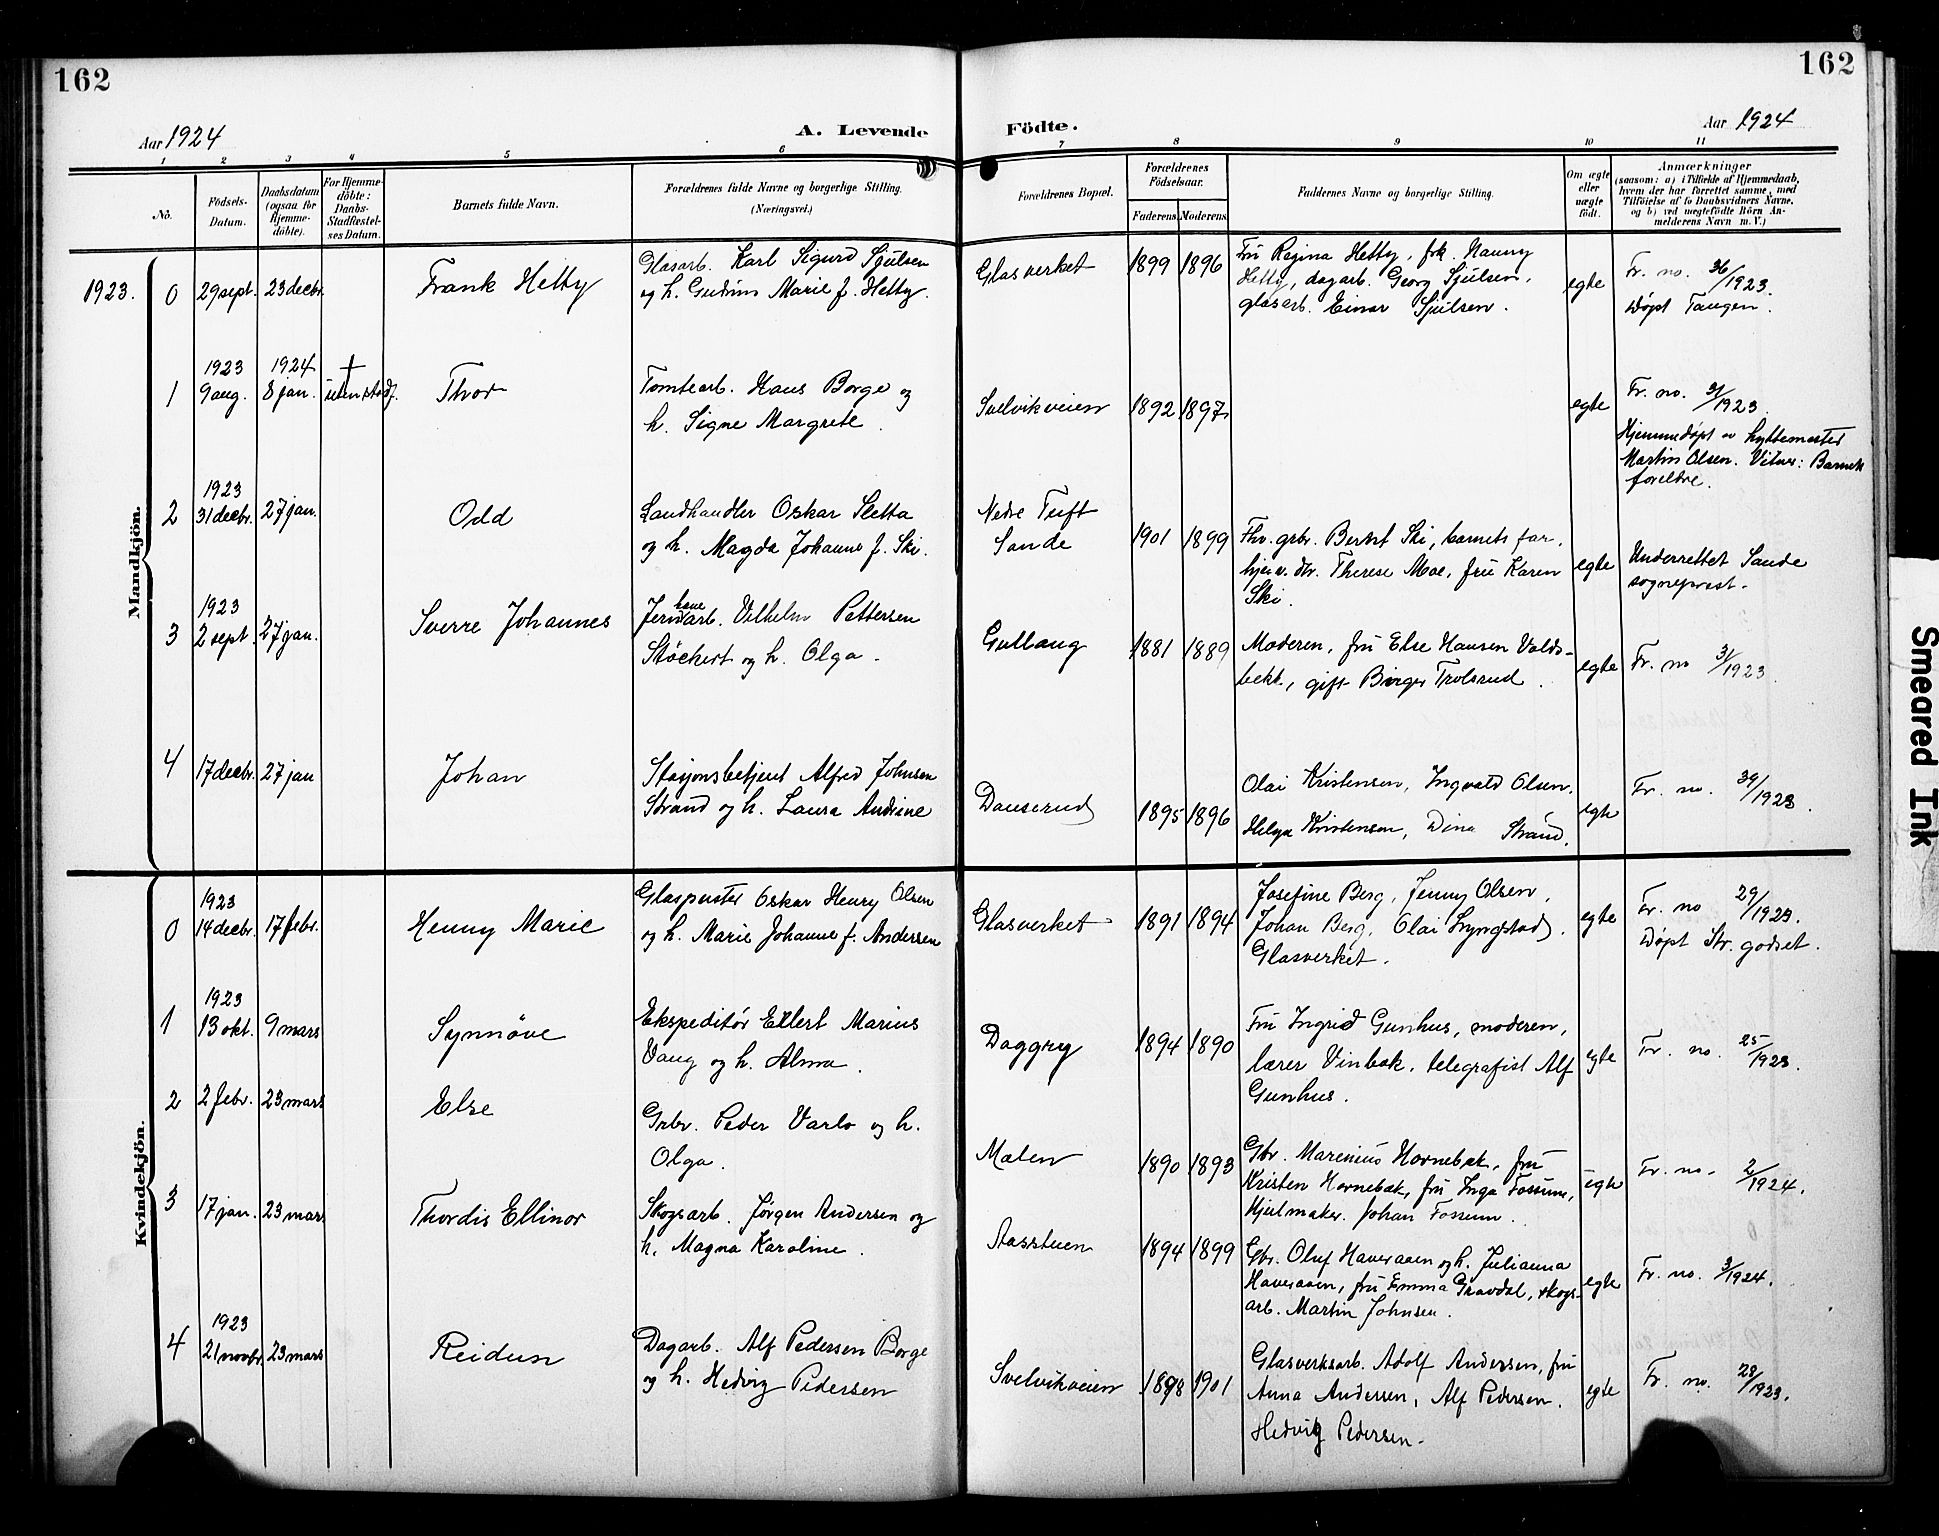 162
162
Aar 1924
A. Levende
Födte.
Aar 1924
1 2 3 4 5 6 7 8 9 10 11
No.
Födsels-
Datum.
Daabsdatum
(ogsaa for
Hjemme-
döbte).
For Hjemme-
döbte:
Daabs-
Stadfæstel-
ses Datum.
Barnets fulde Navn.
Forældrenes fulde Navne og borgerlige Stilling.
(Næringsvei.)
Forældrenes Bopæl.
Forældrenes
Födselsaar.
Faderens
Moderens
Faddernes Navne og borgerlige Stilling.
Om ægte
eller
uægte
født.
Anmærkninger
(saasom: a) i Tilfælde af Hjemmedaab,
hvem der har forrettet samme, med
Tilföielse af to Daabsvidners Navne,
og b) ved uægtefödte Börn An-
melderens Navn m. V.)
Mandkjön.
1923. 0 29 sept. 23 decbr. Frank Hetty
Glasarb. Karl Sigurd Sjulsen
og h. Gudrun Marie f. Hetty.
Glasverket 1899 1896
Fru Regina Hetty, frk. Nanny
Hetty, dagarb. Georg Sjulsen,
glasarb. Einar Sjulsen.
egte
Fr. no. 36/1923.
Døpt Tangen.
1923 1924 +
1 9 aug. 8 jan. uten stadf. Thor
Tomtearb. Hans Borge og
h. Signe Margrete.
Svelvikveien 1892 1897
egte
Fr. no. 31/1923
Hjemmedøpt av hyttemester
Martin Olsen. Vitner: Barnets
foreldre.
1923
2 31 decbr. 27 jan. Odd
Landhandler Oskar Sletta
og h. Magda Johanne f. Ski.
Nedre Tuft
Sande
1901 1899
Fhv. grbr. Bernt Ski, barnets far,
hjemv. dtr. Therese Moe, frue Karen
Ski.
egte
Underrettet Sande
sogneprest.
1923
3 2 sept. 27 jan. Sverre Johannes
Jernbanearb. Vilhelm Pettersen
Støckert og h. Olga.
Gullaug 1881 1889
Moderen, fru Else Hansen Valds-
bekk, gift Birger Trolsrud.
egte
Fr. no 31/1923.
4 17 decbr. 27 jan Johan
Stasjonsbetjent Alfred Johnsen
Strand og h. Laura Andrine
Dauserud 1895 1896
Olai Kristensen, Ingvald Olsen,
Helga Kristensen, Dina Strand.
egte
Fr. no. 39/1923.
Kvindekjön.
1923
0 14 decbr. 17 febr. Henny Marie
Glaspuster Oskar Henry Olsen
og h. Marie Johanne f. Andersen
Glasverket 1891 1894
Josefine Berg, Jenny Olsen,
Johan Berg, Olai Lyngstad,
Glasverket.
egte
Fr. no 29/1923.
Døpt Str. godset.
1923
1 13 okt. 9 mars Synnöve
Ekspeditör Ellert Marius
Vaug og h. Alma.
Daggry 1894 1890
Fru Ingrid Gunhus, moderen,
lærer Vinbak, telegrafist Alf
Gunhus.
egte
Fr. no. 25/1923.
2 2 febr. 23 mars Else
Grbr. Peder Varlo og h.
Olga.
Malen 1890 1893
Gbr. Marenius Hornebæk, fru
Kristen Hornebæk, fru Inga Fossum,
Hjulmaker. Johan Fossum.
egte
Fr. no. 2/1924.
3 17 jan. 23 mars Thordis Ellinor
Skogsarb. Jørgen Andersen og
h. Magna Karoline.
Aasstuen 1894 1899
Gbr. Oluf Haveraaen og h. Julianna
Haveraaen, fru Emma Gravdal, skogs-
arb. Martin Johnsen.
egte
Fr. no. 3/1924.
1923
4 21 novbr. 23 mars Reidun
Dagarb. Alf Pedersen Borge
og h. Hedvig Pedersen
Svelvikveien 1898 1901
Glasverksarb. Adolf Andersen, fru
Anna Andersen, Alf Pedersen.
Hedvig Pedersen.
egte
Fr. no. 28/1923.
Smeared Ink